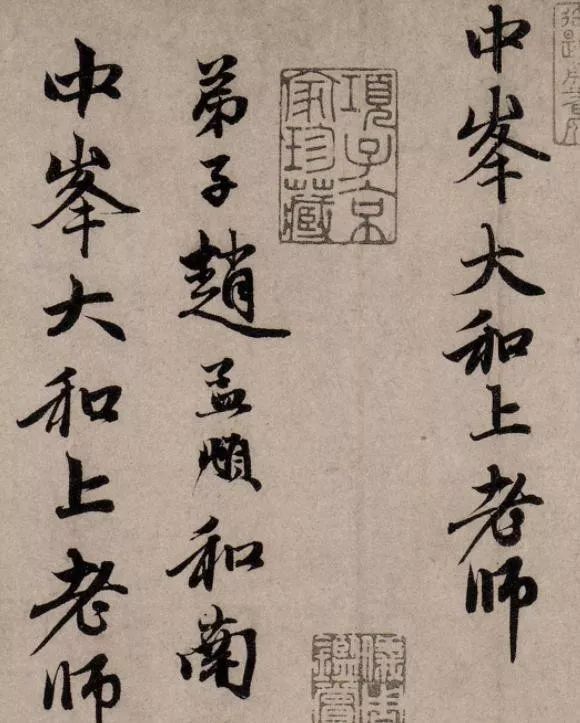 中峯大和上老师
項子京
家珍藏
弟子趙孟頫和南
中峯大和上老师